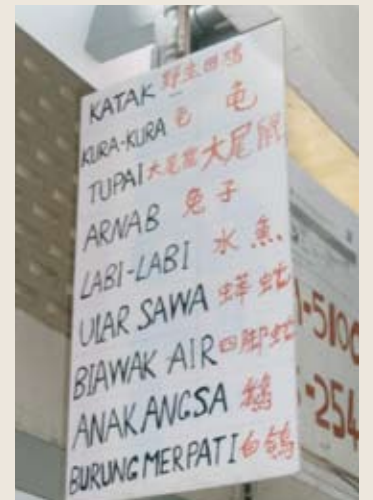 KATAK 野生田鸡
KURA-KURA 龟 龟
TUPAI 大尾鼠 大尾鼠
ARNAB 兔子
LABI-LABI 水魚
ULAR SAWA 蟒蛇
BIAWAK AIR 四脚蛇
ANAK ANGSA 鹅
BURUNG MERPATI 白鸽
-5100
-254